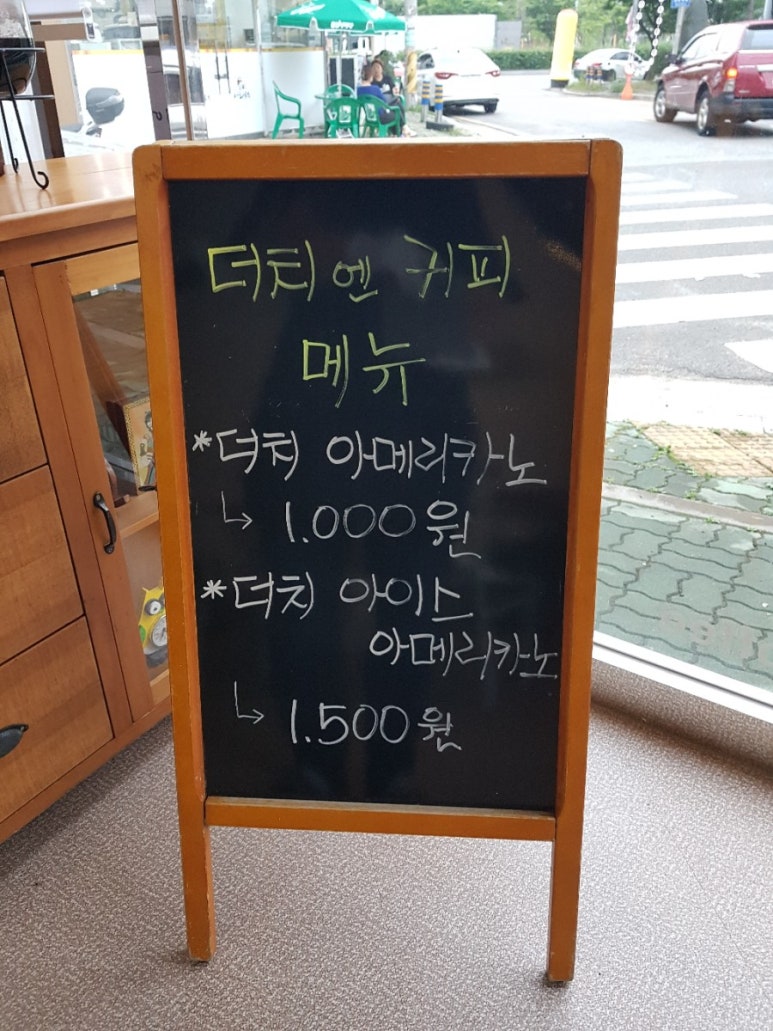 더치 엔 커피
메뉴
*더치 아메리카노
↳ 1.000원
*더치 아이스
아메리카노
↳ 1.500원